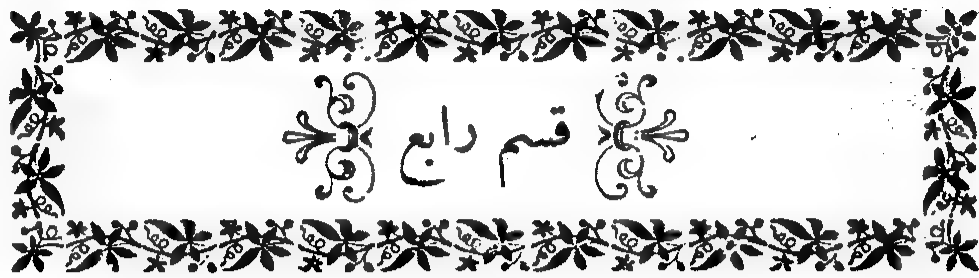 قسم رابع